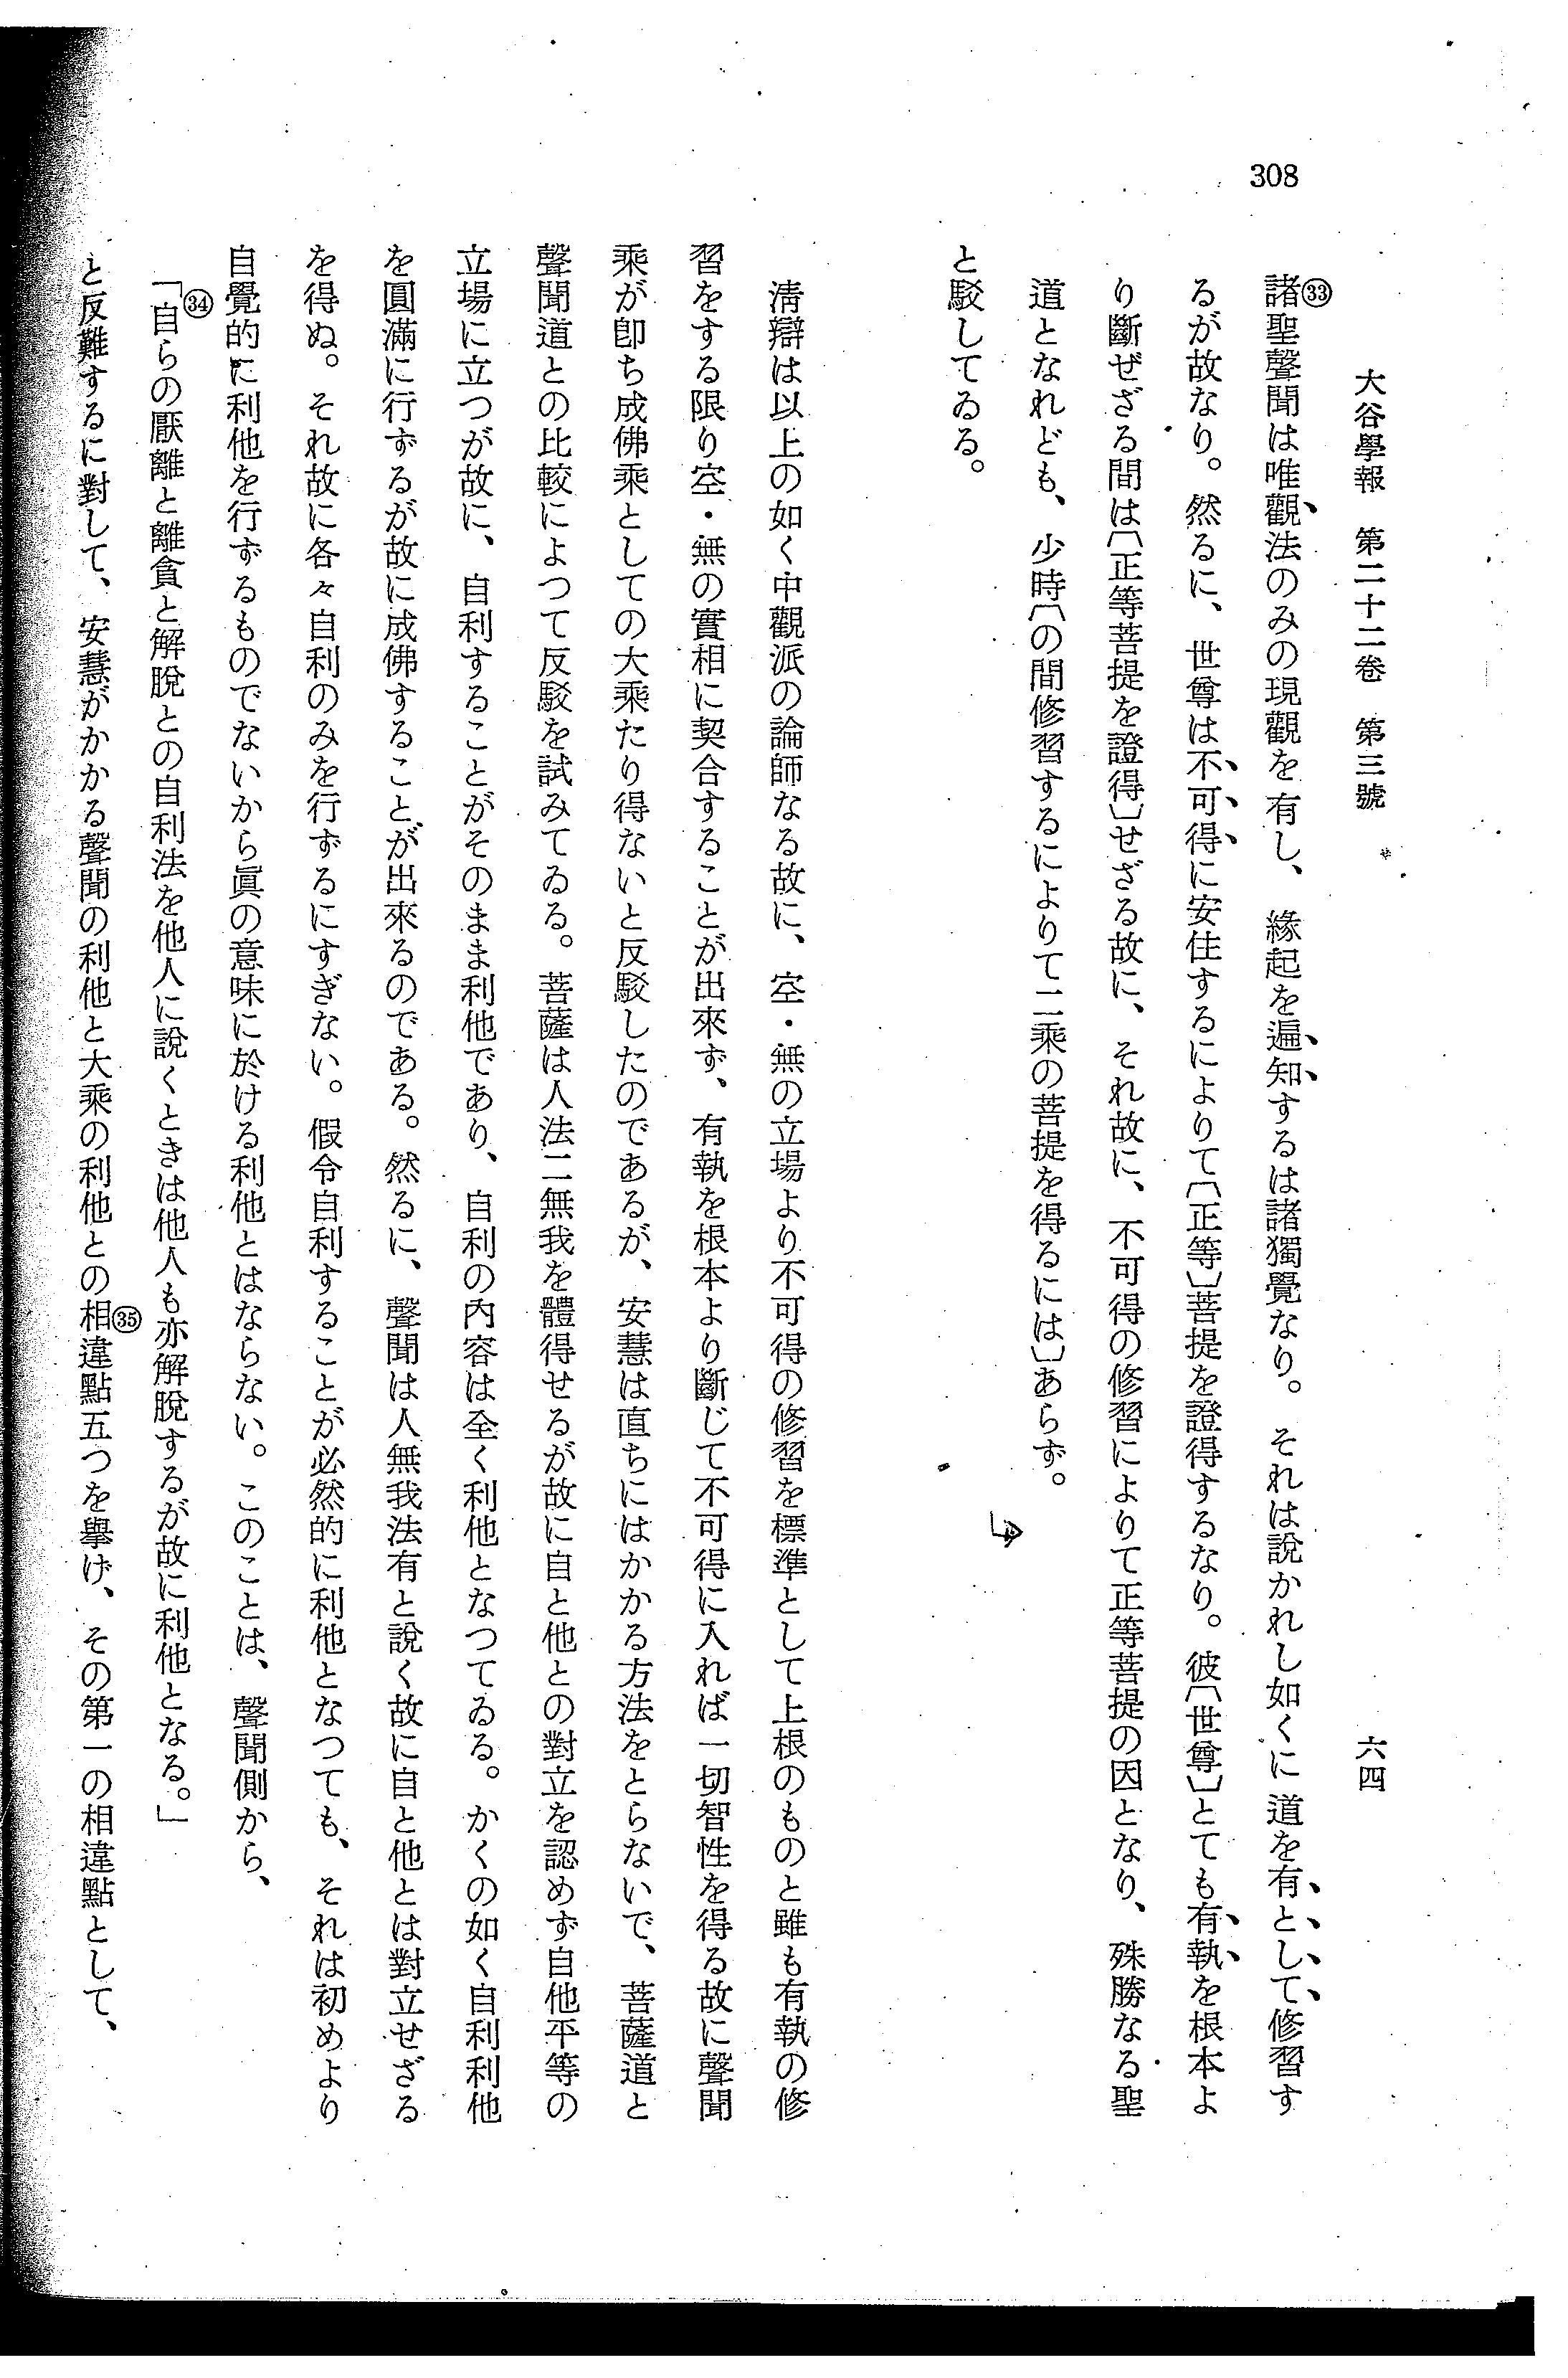 308
大谷學報　第二十二卷　第三號
六四
㉝
諸聖聲聞は唯觀法のみの現觀を有し、緣起を遍知するは諸獨覺なり。それは說かれし如くに道を有として修習す
るが故なり。然るに、世尊は不可得に安住するによりて〔正等〕菩提を證得するなり。彼〔世尊〕とても有執を根本よ
り斷ぜざる間は〔正等菩提を證得〕せざる故に、それ故に、不可得の修習によりて正等菩提の因となり、殊勝なる聖
道となれども、少時〔の間修習するによりて二乘の菩提を得るには〕あらず。
と駁してゐる。
淸辯は以上の如く中觀派の論師なる故に、空・無の立場より不可得の修習を標準として上根のものと雖も有執の修
習をする限り空・無の實相に契合することが出來ず、有執を根本より斷じて不可得に入れば一切智性を得る故に聲聞
乘が卽ち成佛乘としての大乘たり得ないと反駁したのであるが、安慧は直ちにはかかる方法をとらないで、菩薩道と
聲聞道との比較によつて反駁を試みてゐる。菩薩は人法二無我を體得せるが故に自と他との對立を認めず自他平等の
立場に立つが故に、自利することがそのまま利他であり、自利の內容は全く利他となつてゐる。かくの如く自利利他
を圓滿に行ずるが故に成佛することが出來るのである。然るに、聲聞は人無我法有と說く故に自と他とは對立せざる
を得ぬ。それ故に各々自利のみを行ずるにすぎない。假令自利することが必然的に利他となつても、それは初めより
自覺的に利他を行ずるものでないから眞の意味に於ける利他とはならない。このことは、聲聞側から、
㉞
「自らの厭離と離貪と解脫との自利法を他人に說くときは他人も亦解脫するが故に利他となる。」
と反難するに對して、安慧がかかる聲聞の利他と大乘の利他との相違點五つを擧げ、その第一の相違點として、
㉟